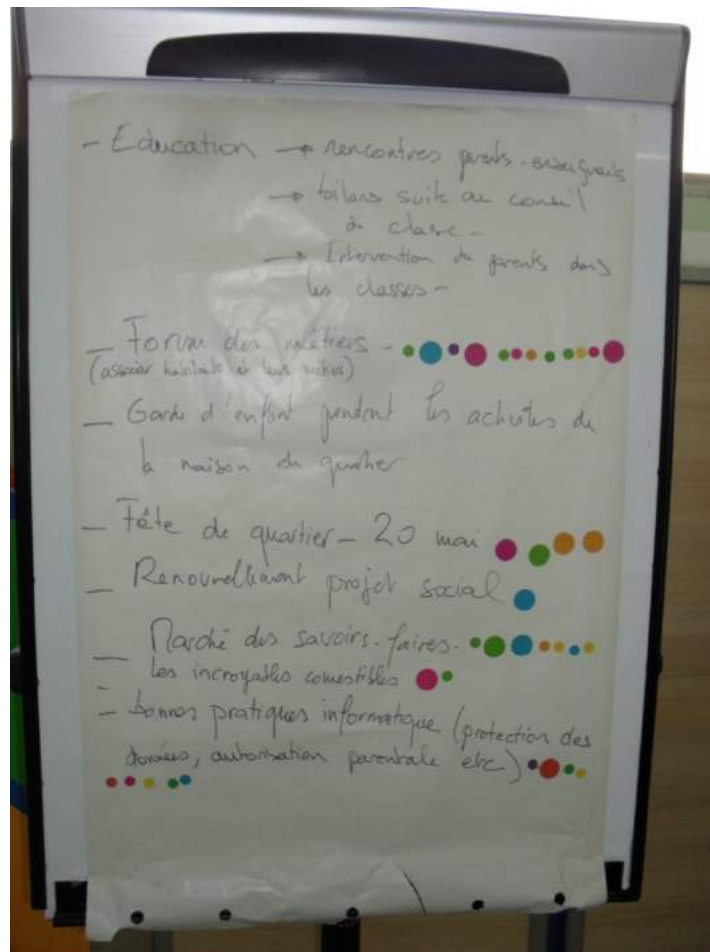 - Education → rencontres parents-enseignants
→ bilans suite au conseil
de classe -
→ Intervention de parents dans
les classes -
- Forum des métiers -
(associer habitants et leurs métiers)
- Garde d'enfant pendant les activités de
la maison du quartier
- Fête de quartier - 20 mai
- Renouvellement projet social
- Marché des savoirs-faires-
- les incroyables comestibles
- bonnes pratiques informatique (protection des
données, autorisation parentale etc)